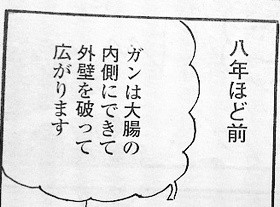 八年ほど前
ガンは大腸の
内側にできて
外壁を破って
広がります